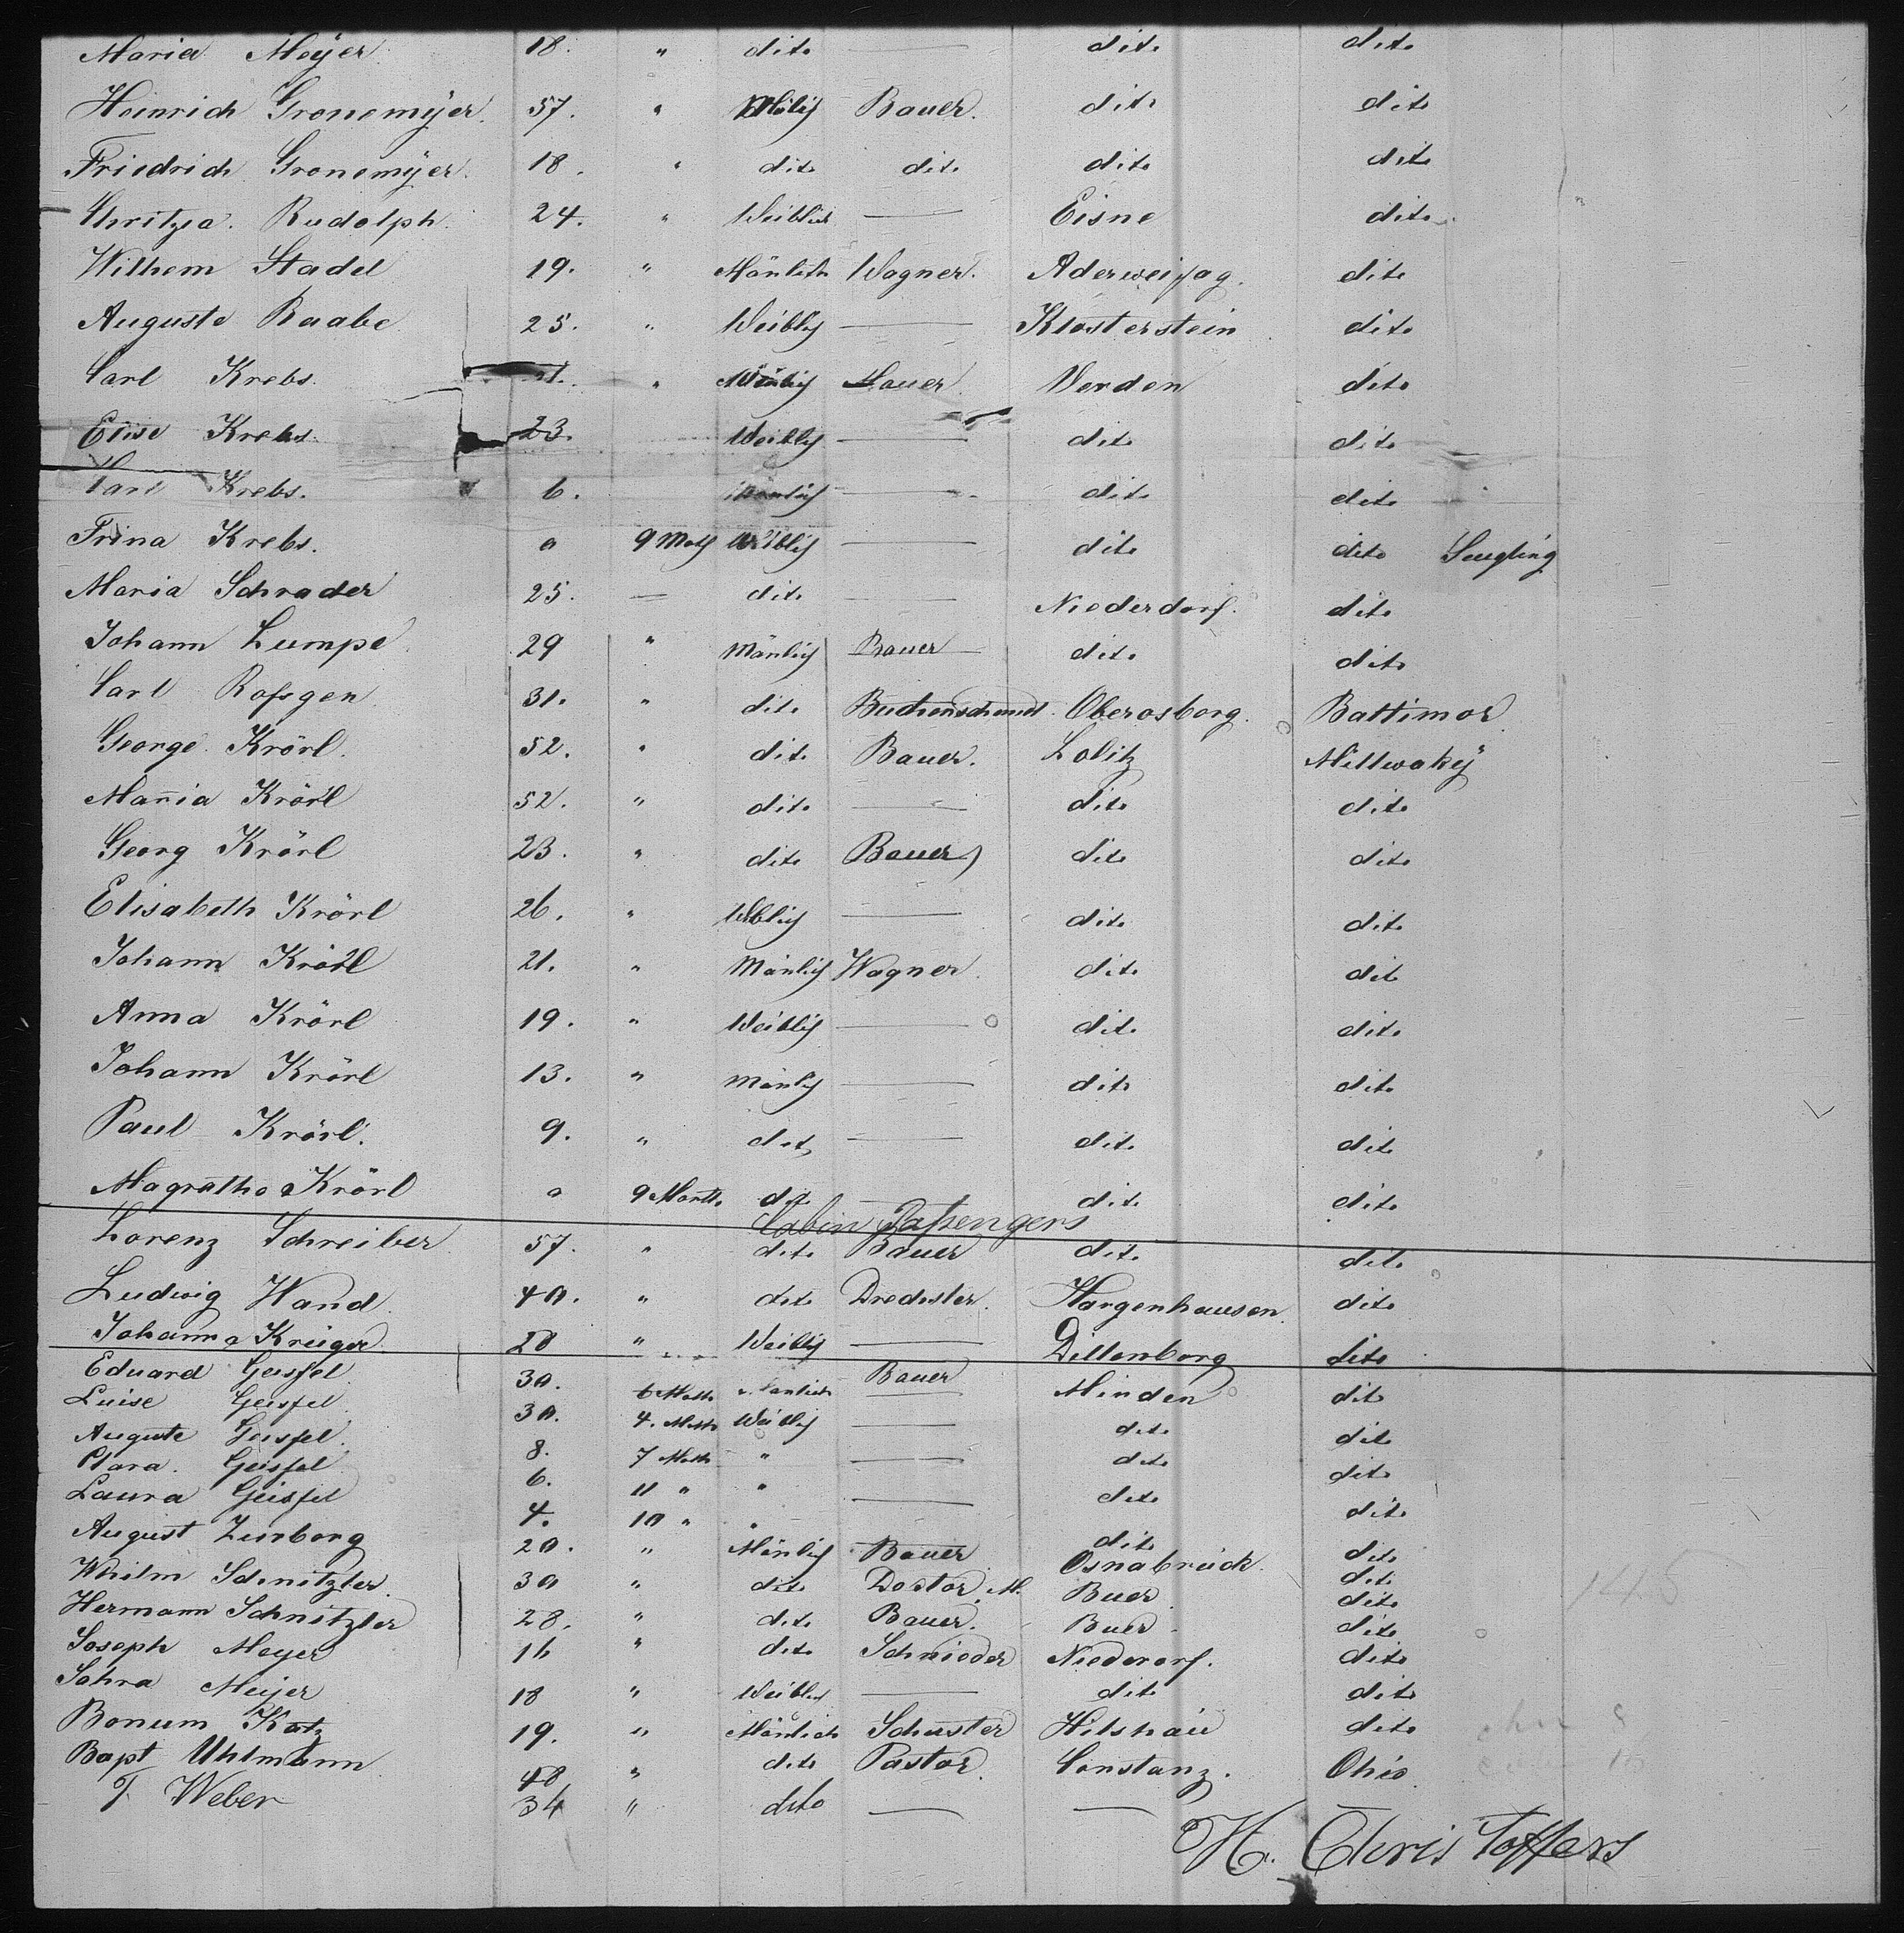 Maria Meyer 18. " dito — dito dito
Heinrich Gronemÿer. 57. " Mänlich Bauer. dito dito
Friedrich Gronemÿer. 18. " dito dito dito dito
Rudolph 24. " Weiblich — Eisne dito
Wilhem Stadel 19. " Mänlich Wagner. dito
Auguste Raabe 25. " Weiblig — Klosterstein dito
Carl Krebs. " Mänlig Bauer Verden dito
Elise Krebs. 23. Weiblig — dito dito
Carl Krebs. 6. Mänlig — dito dito
Trina Krebs. 0 9 Mots Weiblig — dito dito Seugling
Maria Schrader 25. — dito — Niederdorf. dito
Johann Lumpe 29 " Mänlig Bauer dito dito
Carl Rofsgen 31. " dito Buchenschmid Oberosborg. Baltimor
George Krörl. 52. " dito Bauer. Lolitz Millwakÿ
Mannia Krörl 52. " dito — dito dito
Georg Krörl 23. " dito Bauer dito dito
Elisabeth Krörl 26. " Wblig — dito dito
Johann Krörl 21. " Mänlig Wagner. dito dito
Anna Krörl 19. " Weiblig — dito dito
Johann Krörl 13. " Mänlig — dito dito
Paul Krörl. 9. " dito — dito dito
Magratha Krörl 0 9 Month dito — dito dito
Cabin Pafsengers
Lorenz Schreiber 57. " dito Bauer dito dito
Ludwig Wand 40. " dito Dredsler. Hargenhausen. dito
Johanna Krüger 28 " Weiblig — Dillenborg dito
Eduard Geisfel 30. 6 Moth Mänlich Bauer Minden dito
Luise Geisfel 30. 4. Moth Weiblig — dito dito
Auguste Geisfel. 8. 7 Moth " — dito dito
Clara. Geisfel 6. 11 " " — dito dito
Laura Geisfel 4. 10 " " dito dito
August Zurborg 20. " Mänlig Bauer Osnabrück. dito
Whilm Schnitzler. 30 " dito Doctor. M. Buer dito
Hermann Schnitzler 28. " dito Bauer. Buer. dito
Joseph Meyer 16 " dito Schnieder Niederorf. dito
Sahra Meijer 18 " Weiblich — dito dito
Bonum Katz 19. " Mänlich Schuster Hilshau dito
Bapt Uhlmann 48 " dito Pastor. Constanz. Ohio
T. Weber 34 " dito — — —
H. Christoffers